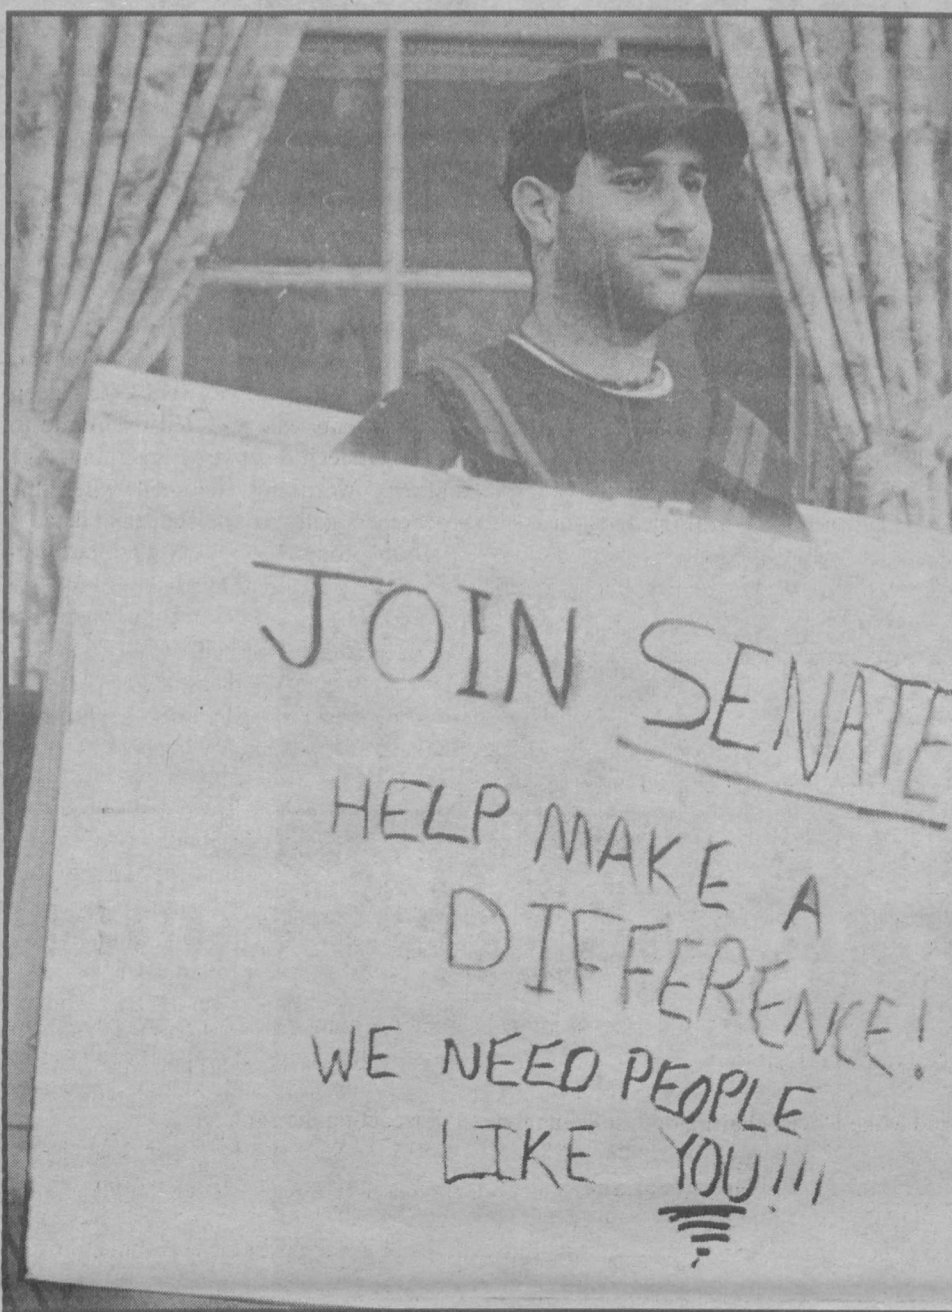 JOIN SENATE
HELP MAKE A
DIFFERENCE!
WE NEED PEOPLE
LIKE YOU!!!